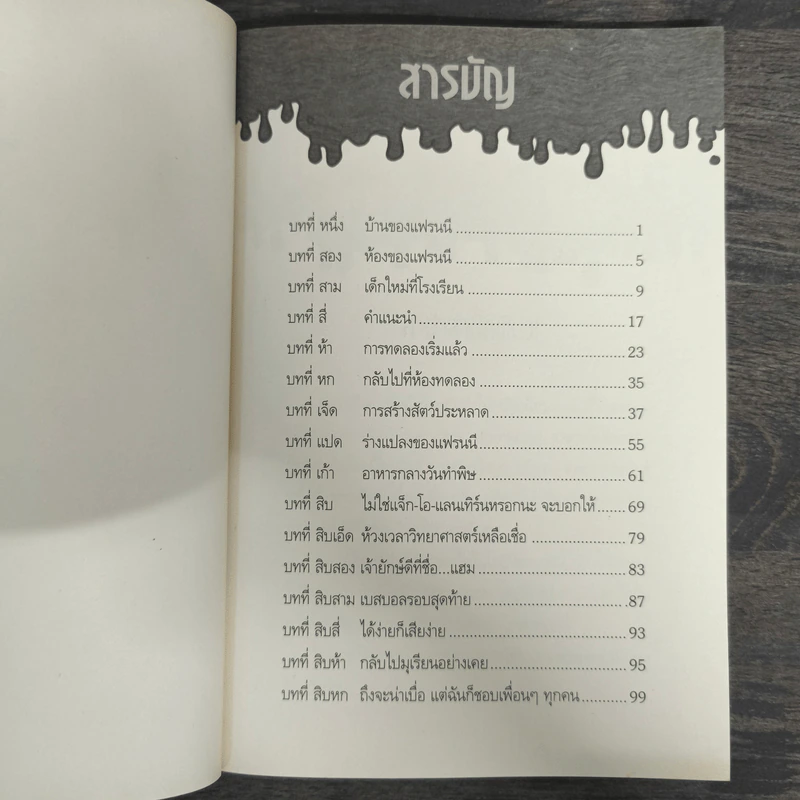 สารบัญ
บทที่ หนึ่ง บ้านของแฟรนนี ........................................ 1
บทที่ สอง ห้องของแฟรนนี ........................................ 5
บทที่ สาม เด็กใหม่ที่โรงเรียน ..................................... 9
บทที่ สี่ คำแนะนำ ................................................ 17
บทที่ ห้า การทดลองเริ่มแล้ว ................................... 23
บทที่ หก กลับไปที่ห้องทดลอง ................................. 35
บทที่ เจ็ด การสร้างสัตว์ประหลาด .............................. 37
บทที่ แปด ร่างแปลงของแฟรนนี ................................. 55
บทที่ เก้า อาหารกลางวันทำพิษ ................................. 61
บทที่ สิบ ไม่ใช่แจ็ก-โอ-แลนเทิร์นหรอกนะ จะบอกให้ ....... 69
บทที่ สิบเอ็ด ห้วงเวลาวิทยาศาสตร์เหลือเชื่อ ..................... 79
บทที่ สิบสอง เจ้ายักษ์ดีที่ชื่อ...แฮม ................................ 83
บทที่ สิบสาม เบสบอลรอบสุดท้าย ................................. 87
บทที่ สิบสี่ ได้ง่ายก็เสียง่าย ...................................... 93
บทที่ สิบห้า กลับไปมุเรียนอย่างเคย .............................. 95
บทที่ สิบหก ถึงจะน่าเบื่อ แต่ฉันก็ชอบเพื่อนๆ ทุกคน ........... 99